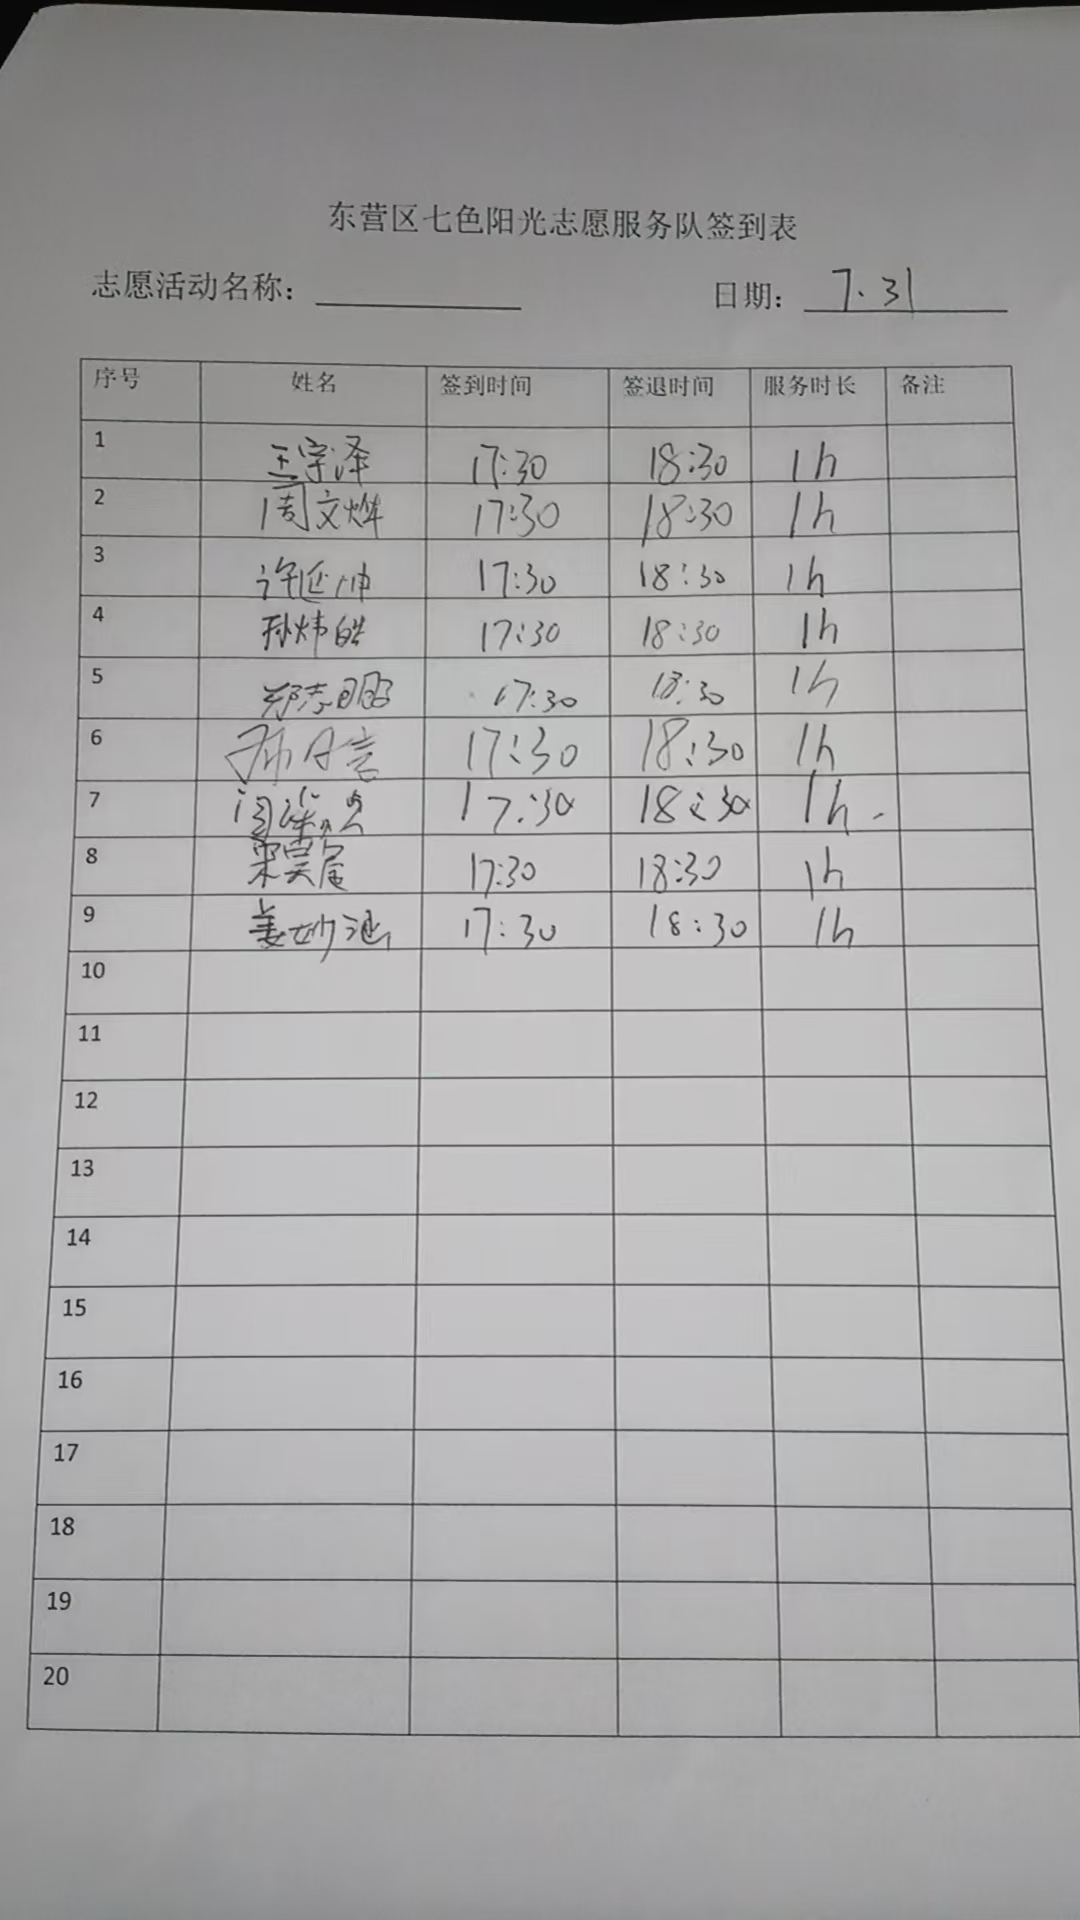 东营区七色阳光志愿服务队签到表
志愿活动名称： 日期： 7.31
序号 姓名 签到时间 签退时间 服务时长 备注
1 王宗泽 17:30 18:30 1h
2 周文烨 17:30 18:30 1h
3 许延坤 17:30 18:30 1h
4 孙炜皓 17:30 18:30 1h
5 郑志 17:30 18:30 1h
6 17:30 18:30 1h
7 17:30 18:30 1h
8 宋昊 17:30 18:30 1h
9 姜妙涵 17:30 18:30 1h
10
11
12
13
14
15
16
17
18
19
20